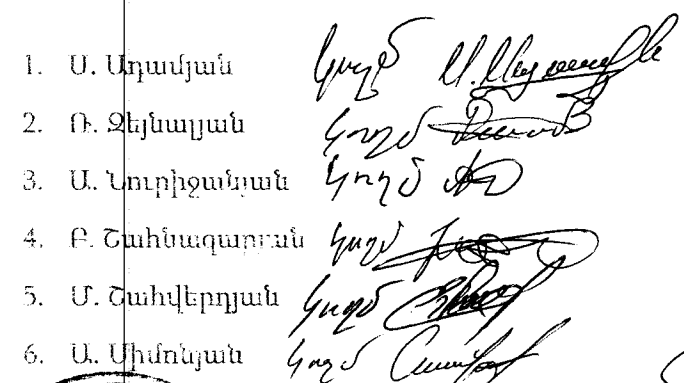 1. Ս. Ադամյան կողմ
2. Ռ. Զեյնալյան կողմ
3. Ա. Նուրիջանյան կողմ
4. Բ. Շահնազարյան կողմ
5. Մ. Շահվերդյան կողմ
6. Ա. Սիմոնյան կողմ